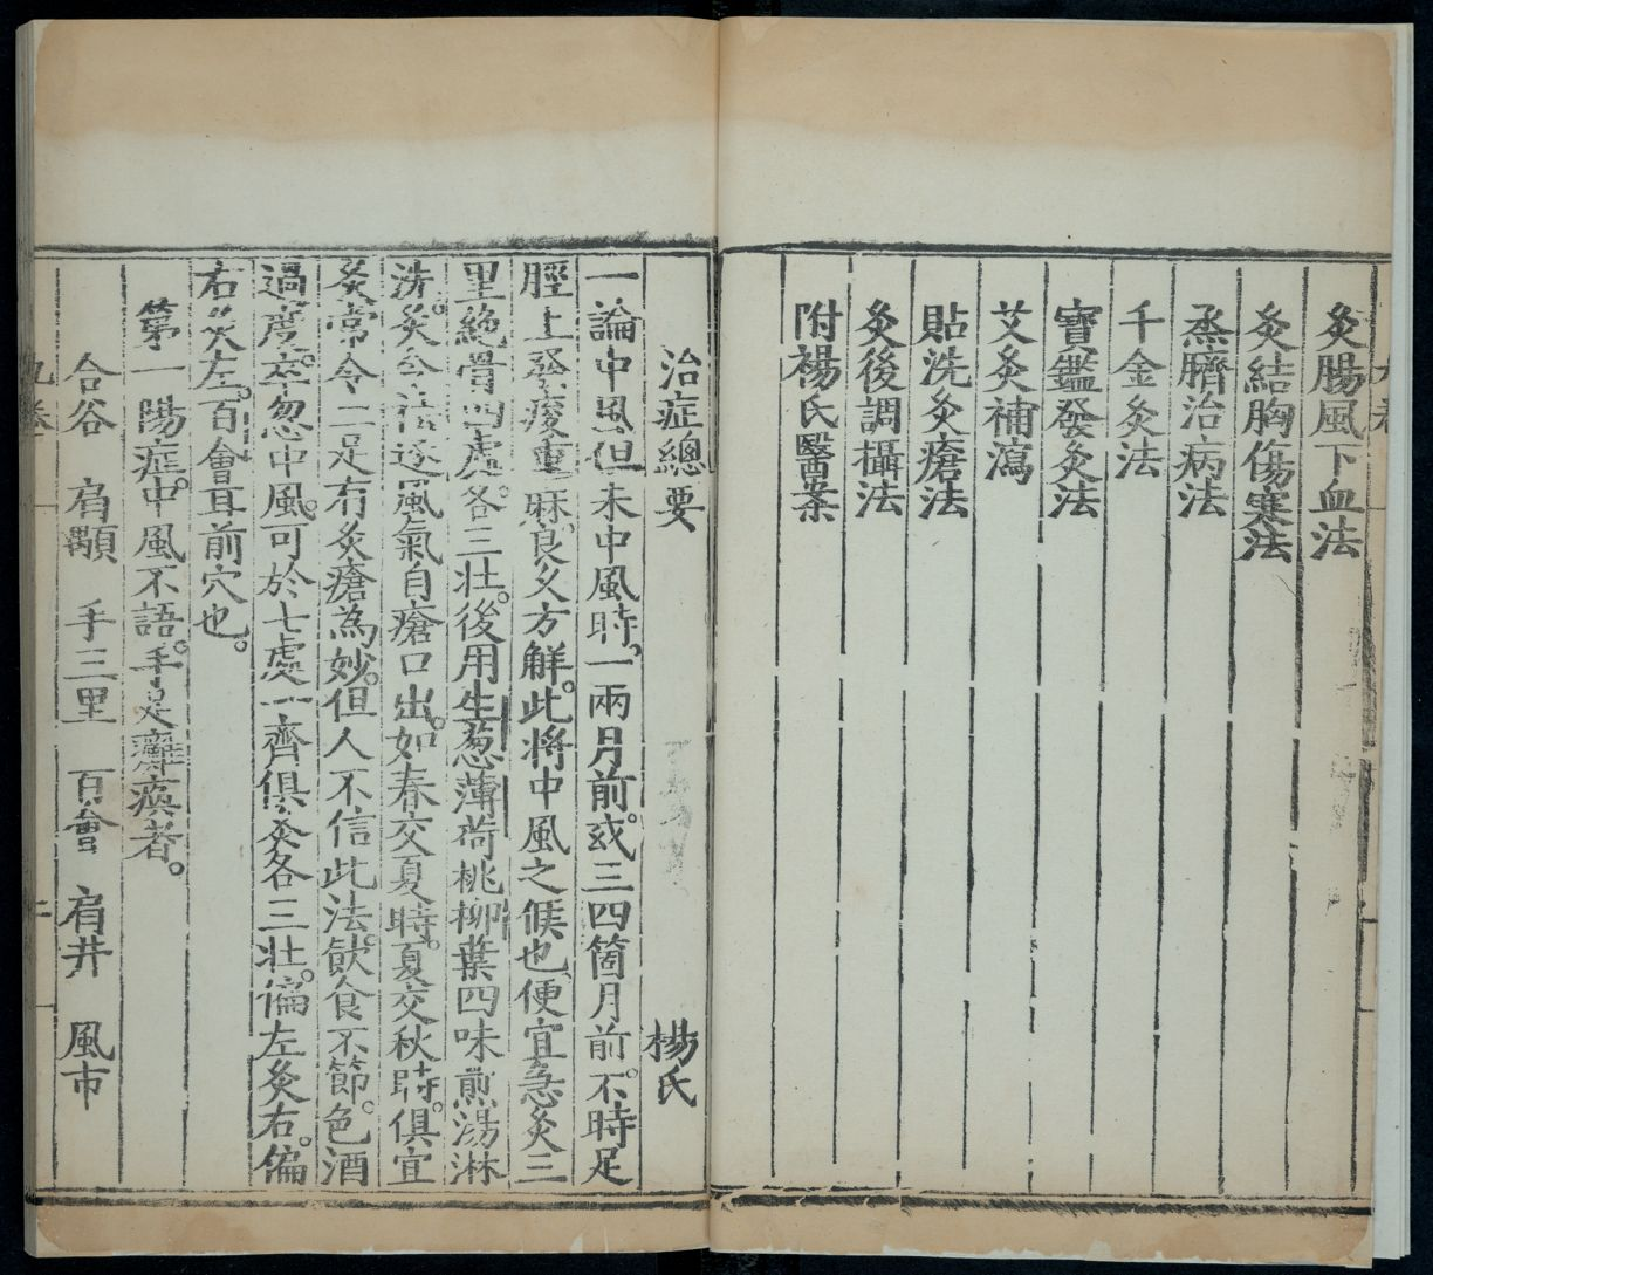 灸腸風下血法
灸結胸傷寒法
烝臍治病法
千金灸法
寶鑑發灸法
艾灸補瀉
貼洗灸瘡法
灸後調攝法
附楊氏醫案
治症總要 楊氏
一論中風但未中風時。一兩月前。或三四箇月前。不時足
脛上發痠重麻。良久方解。此將中風之候也。便宜急灸三
里絶骨四處。各三壯。後用生葱薄荷桃柳葉四味煎湯淋
洗。灸令祛逐風氣自瘡口出。如春交夏時。夏交秋時。俱宜
灸常令二足有灸瘡為妙。但人不信此法。飲食不節。色酒
過度。卒忽中風。可於七處一齊俱灸各三壯。偏左灸右。偏
右灸左。百會耳前穴也。
第一陽症。中風不語。手足癱瘓者。
合谷 肩髃 手三里 百會 肩井 風市
九卷